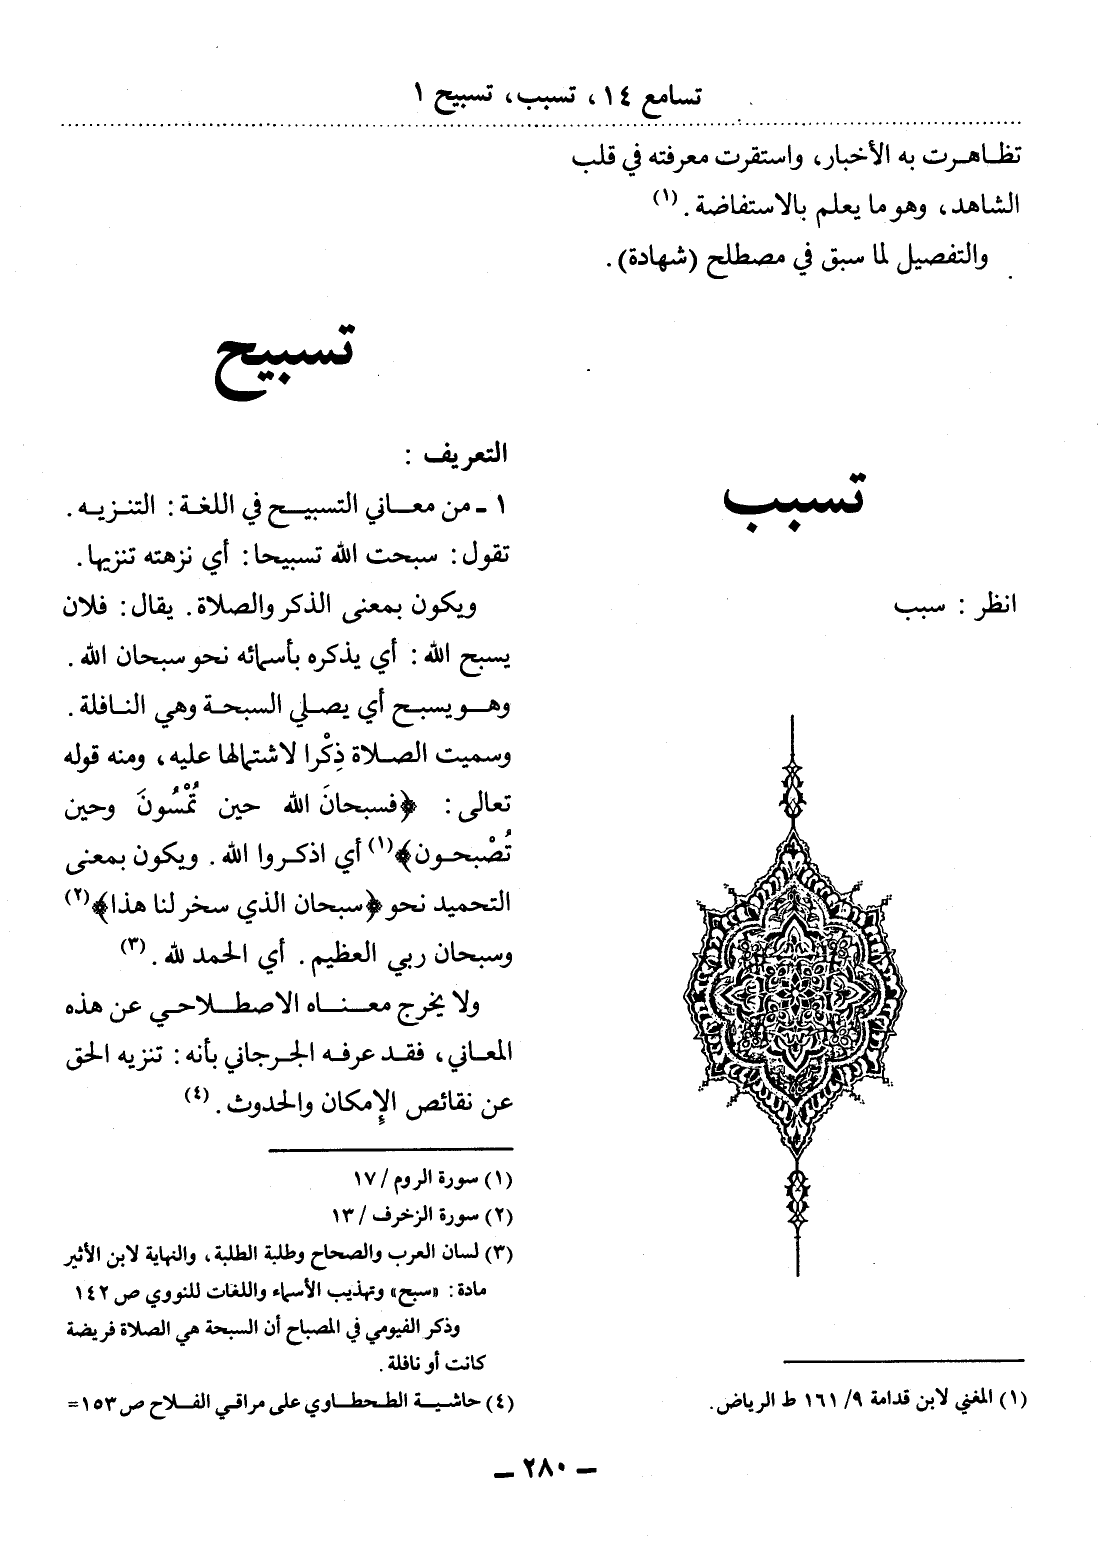 تسامع ١٤، تسبب، تسبيح ١
تظاهرت به الأخبار، واستقرت معرفته في قلب
الشاهد، وهو ما يعلم بالاستفاضة. (١)
والتفصيل لما سبق في مصطلح (شهادة).
تسبب
انظر : سبب
(١) المغني لابن قدامة ٩/ ١٦١ ط الرياض.
تسبيح
التعريف :
١ ـ من معاني التسبيح في اللغة: التنزيه.
تقول: سبحت الله تسبيحا: أي نزهته تنزيها.
ويكون بمعنى الذكر والصلاة. يقال: فلان
يسبح الله: أي يذكره بأسمائه نحو سبحان الله.
وهو يسبح أي يصلي السبحة وهي النافلة.
وسميت الصلاة ذِكْرا لاشتمالها عليه، ومنه قوله
تعالى: ﴿فسبحانَ الله حين تُمْسُونَ وحين
تُصْبحون﴾(١) أي اذكروا الله. ويكون بمعنى
التحميد نحو ﴿سبحان الذي سخر لنا هذا﴾(٢)
وسبحان ربي العظيم. أي الحمد لله. (٣)
ولا يخرج معناه الاصطلاحي عن هذه
المعاني، فقد عرفه الجرجاني بأنه: تنزيه الحق
عن نقائص الإمكان والحدوث. (٤)
(١) سورة الروم / ١٧
(٢) سورة الزخرف / ١٣
(٣) لسان العرب والصحاح وطلبة الطلبة، والنهاية لابن الأثير
مادة: «سبح» وتهذيب الأسماء واللغات للنووي ص ١٤٢
وذكر الفيومي في المصباح أن السبحة هي الصلاة فريضة
كانت أو نافلة.
(٤) حاشية الطحطاوي على مراقي الفلاح ص ١٥٣=
ـ ٢٨٠ ـ